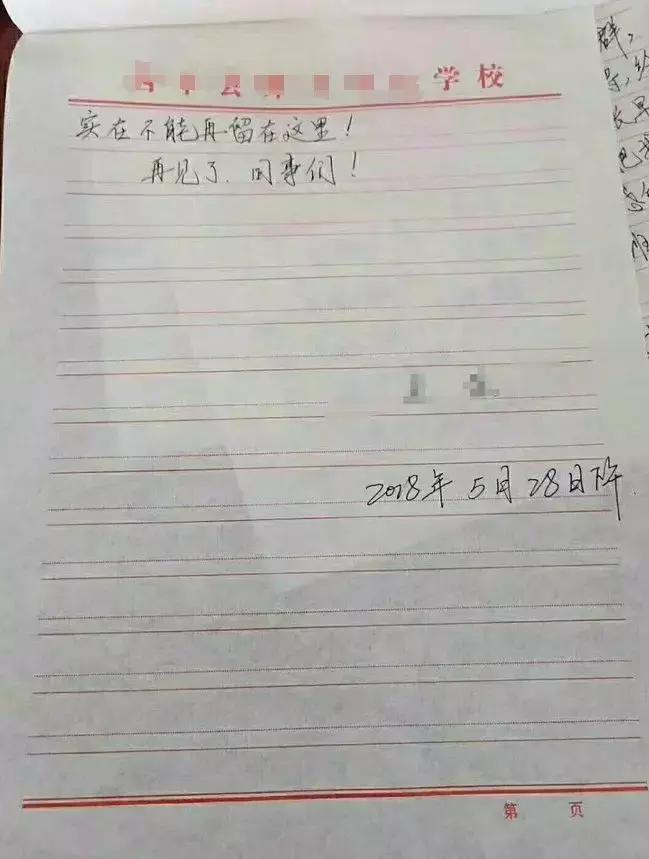 学校
实在不能再留在这里！
再见了、同事们！
2018年5月28日下午.
第 页